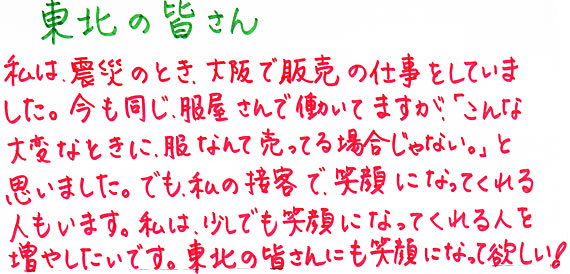 東北の皆さん
私は、震災のとき、大阪で販売の仕事をしていま
した。今も同じ、服屋さんで働いてますが、「こんな
大変なときに、服なんて売ってる場合じゃない。」と
思いました。でも、私の接客で、笑顔になってくれる
人もいます。私は、少しでも笑顔になってくれる人を
増やしたいです。東北の皆さんにも笑顔になって欲しい!